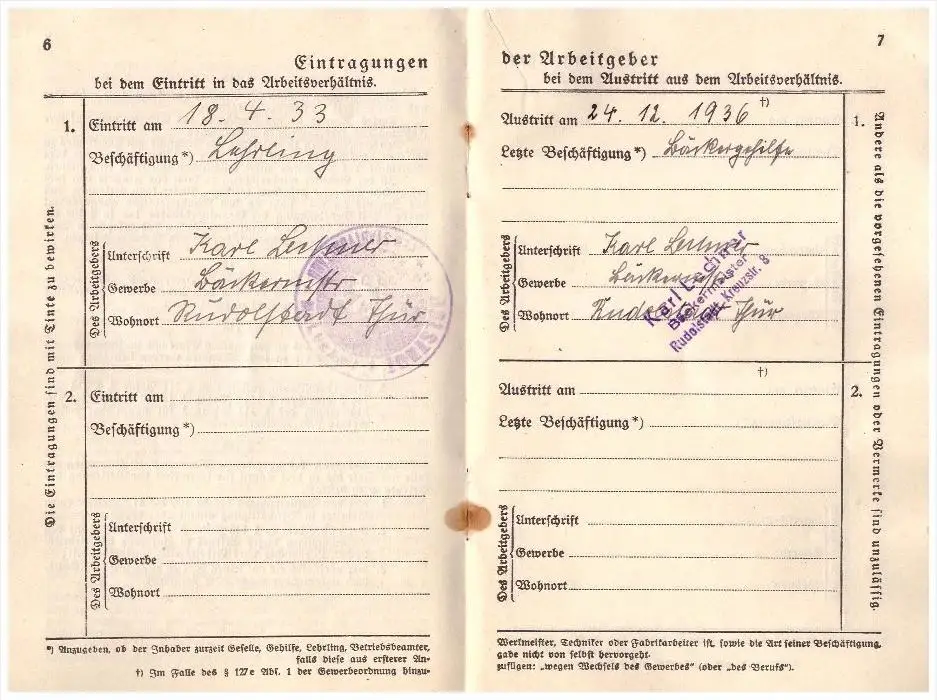 6
Eintragungen
bei dem Eintritt in das Arbeitsverhältnis.
1. Eintritt am 18. 4. 33
Beschäftigung*) Lehrling
Des Arbeitgebers
Unterschrift Karl Lechner
Gewerbe Bäckermstr
Wohnort Rudolstadt Thür
2. Eintritt am
Beschäftigung*)
Des Arbeitgebers
Unterschrift
Gewerbe
Wohnort
Die Eintragungen sind mit Tinte zu bewirken.
*) Anzugeben, ob der Inhaber zurzeit Geselle, Gehilfe, Lehrling, Betriebsbeamter,
falls diese aus ersterer An-
†) Im Falle des § 127e Abs. 1 der Gewerbeordnung hinzu-
7
der Arbeitgeber
bei dem Austritt aus dem Arbeitsverhältnis.
†)
1. Austritt am 24. 12. 1936
Letzte Beschäftigung*) Bäckergehilfe
Des Arbeitgebers
Unterschrift Karl Lechner
Gewerbe
Wohnort Rudolstadt Thür
Karl Lechner
Bäckermeister
Rudolstadt, Kreuzstr. 8
†)
2. Austritt am
Letzte Beschäftigung*)
Des Arbeitgebers
Unterschrift
Gewerbe
Wohnort
Andere als die vorgesehenen Eintragungen oder Vermerke sind unzulässig.
Werkmeister, Techniker oder Fabrikarbeiter ist, sowie die Art seiner Beschäftigung,
gabe nicht von selbst hervorgeht.
zufügen: „wegen Wechsels des Gewerbes" (oder „des Berufs").